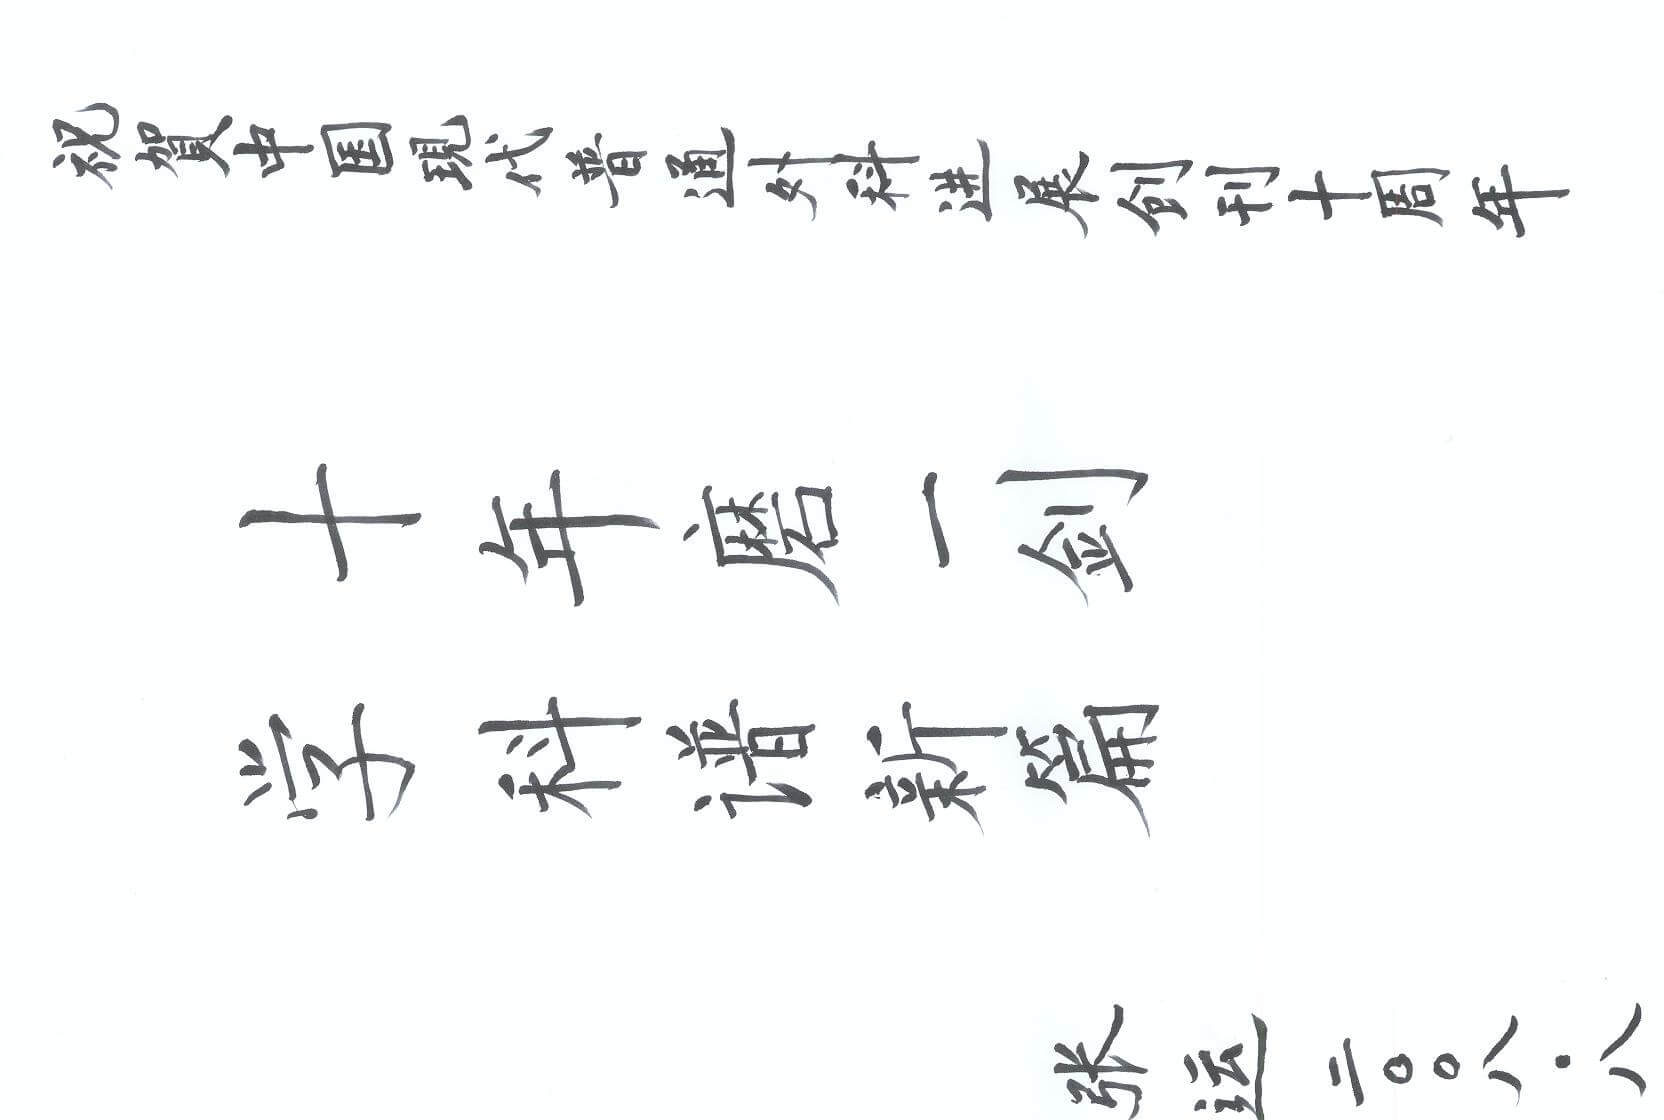 祝賀中国現代普通外科进展创刊十周年
十年磨一剑
学科谱新篇
张运 二〇〇八·八